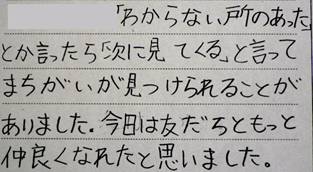 「わからない所のあった」
とか言ったら「次に見てくる」と言って
まちがいが見つけられることが
ありました。今日は友だちともっと
仲良くなれたと思いました。